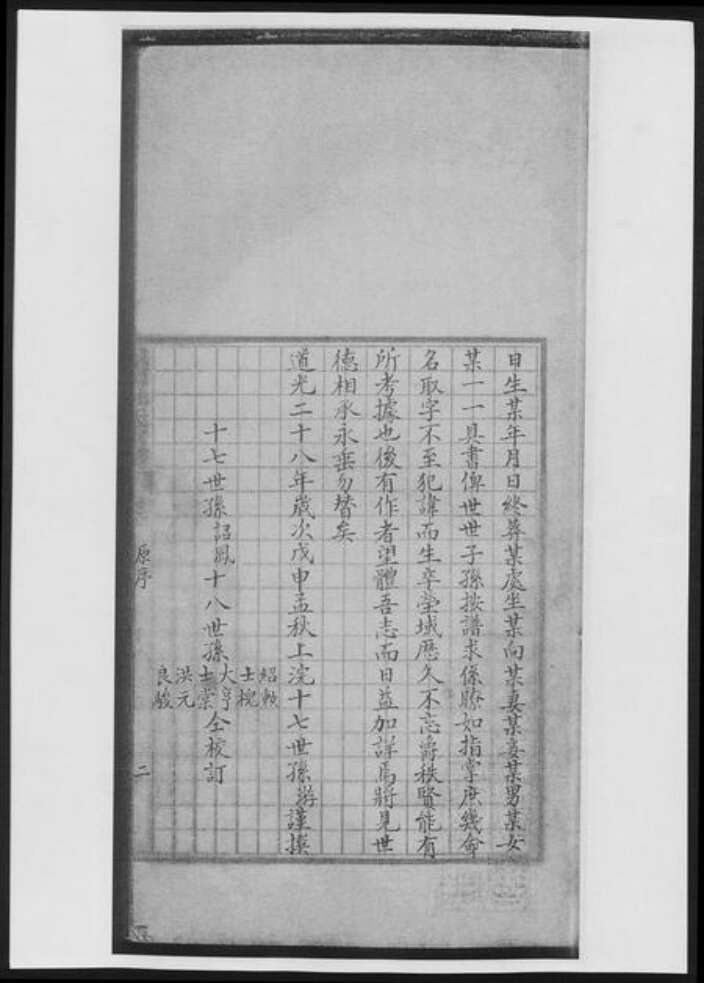 日生某年月日終葬某處坐某向某妻某妾某男某女
某一一具書俾世世子孫按譜求係瞭如指掌庶幾命
名取字不至犯諱而生卒塋域歷久不忘爵秩賢能有
所考據也後有作者望體吾志而日益加詳焉將見世
德相承永垂勿替矣
道光二十八年歲次戊申孟秋上浣十七世孫游謹撰
紹勲
士槐
十七世孫詔鳳十八世孫大亨仝校訂
士崇
洪元
良駿
原序
二